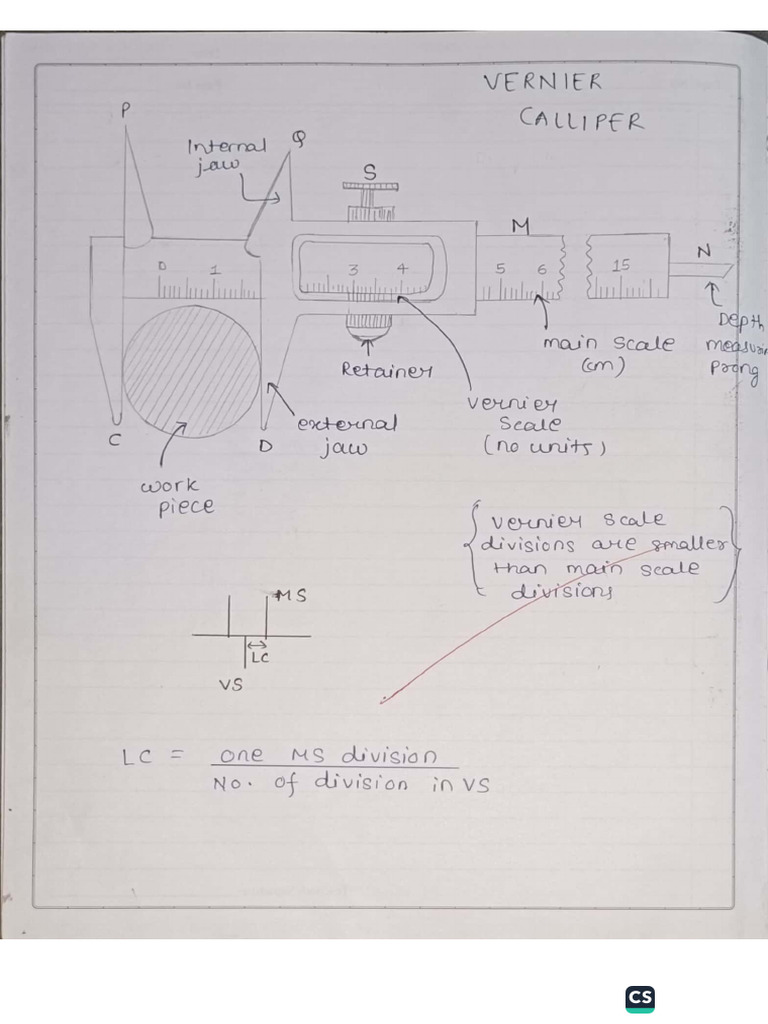 VERNIER
CALLIPER
P
Internal
jaw
Q
S
M
N
0 1 3 4 5 6 15
Depth
measurin
Prong
main scale
(cm)
Retainer
vernier
scale
(no units)
external
jaw
C
D
work
piece
vernier scale
divisions are smaller
than main scale
divisions
MS
LC
VS
LC = one MS division
No. of division in VS
CS